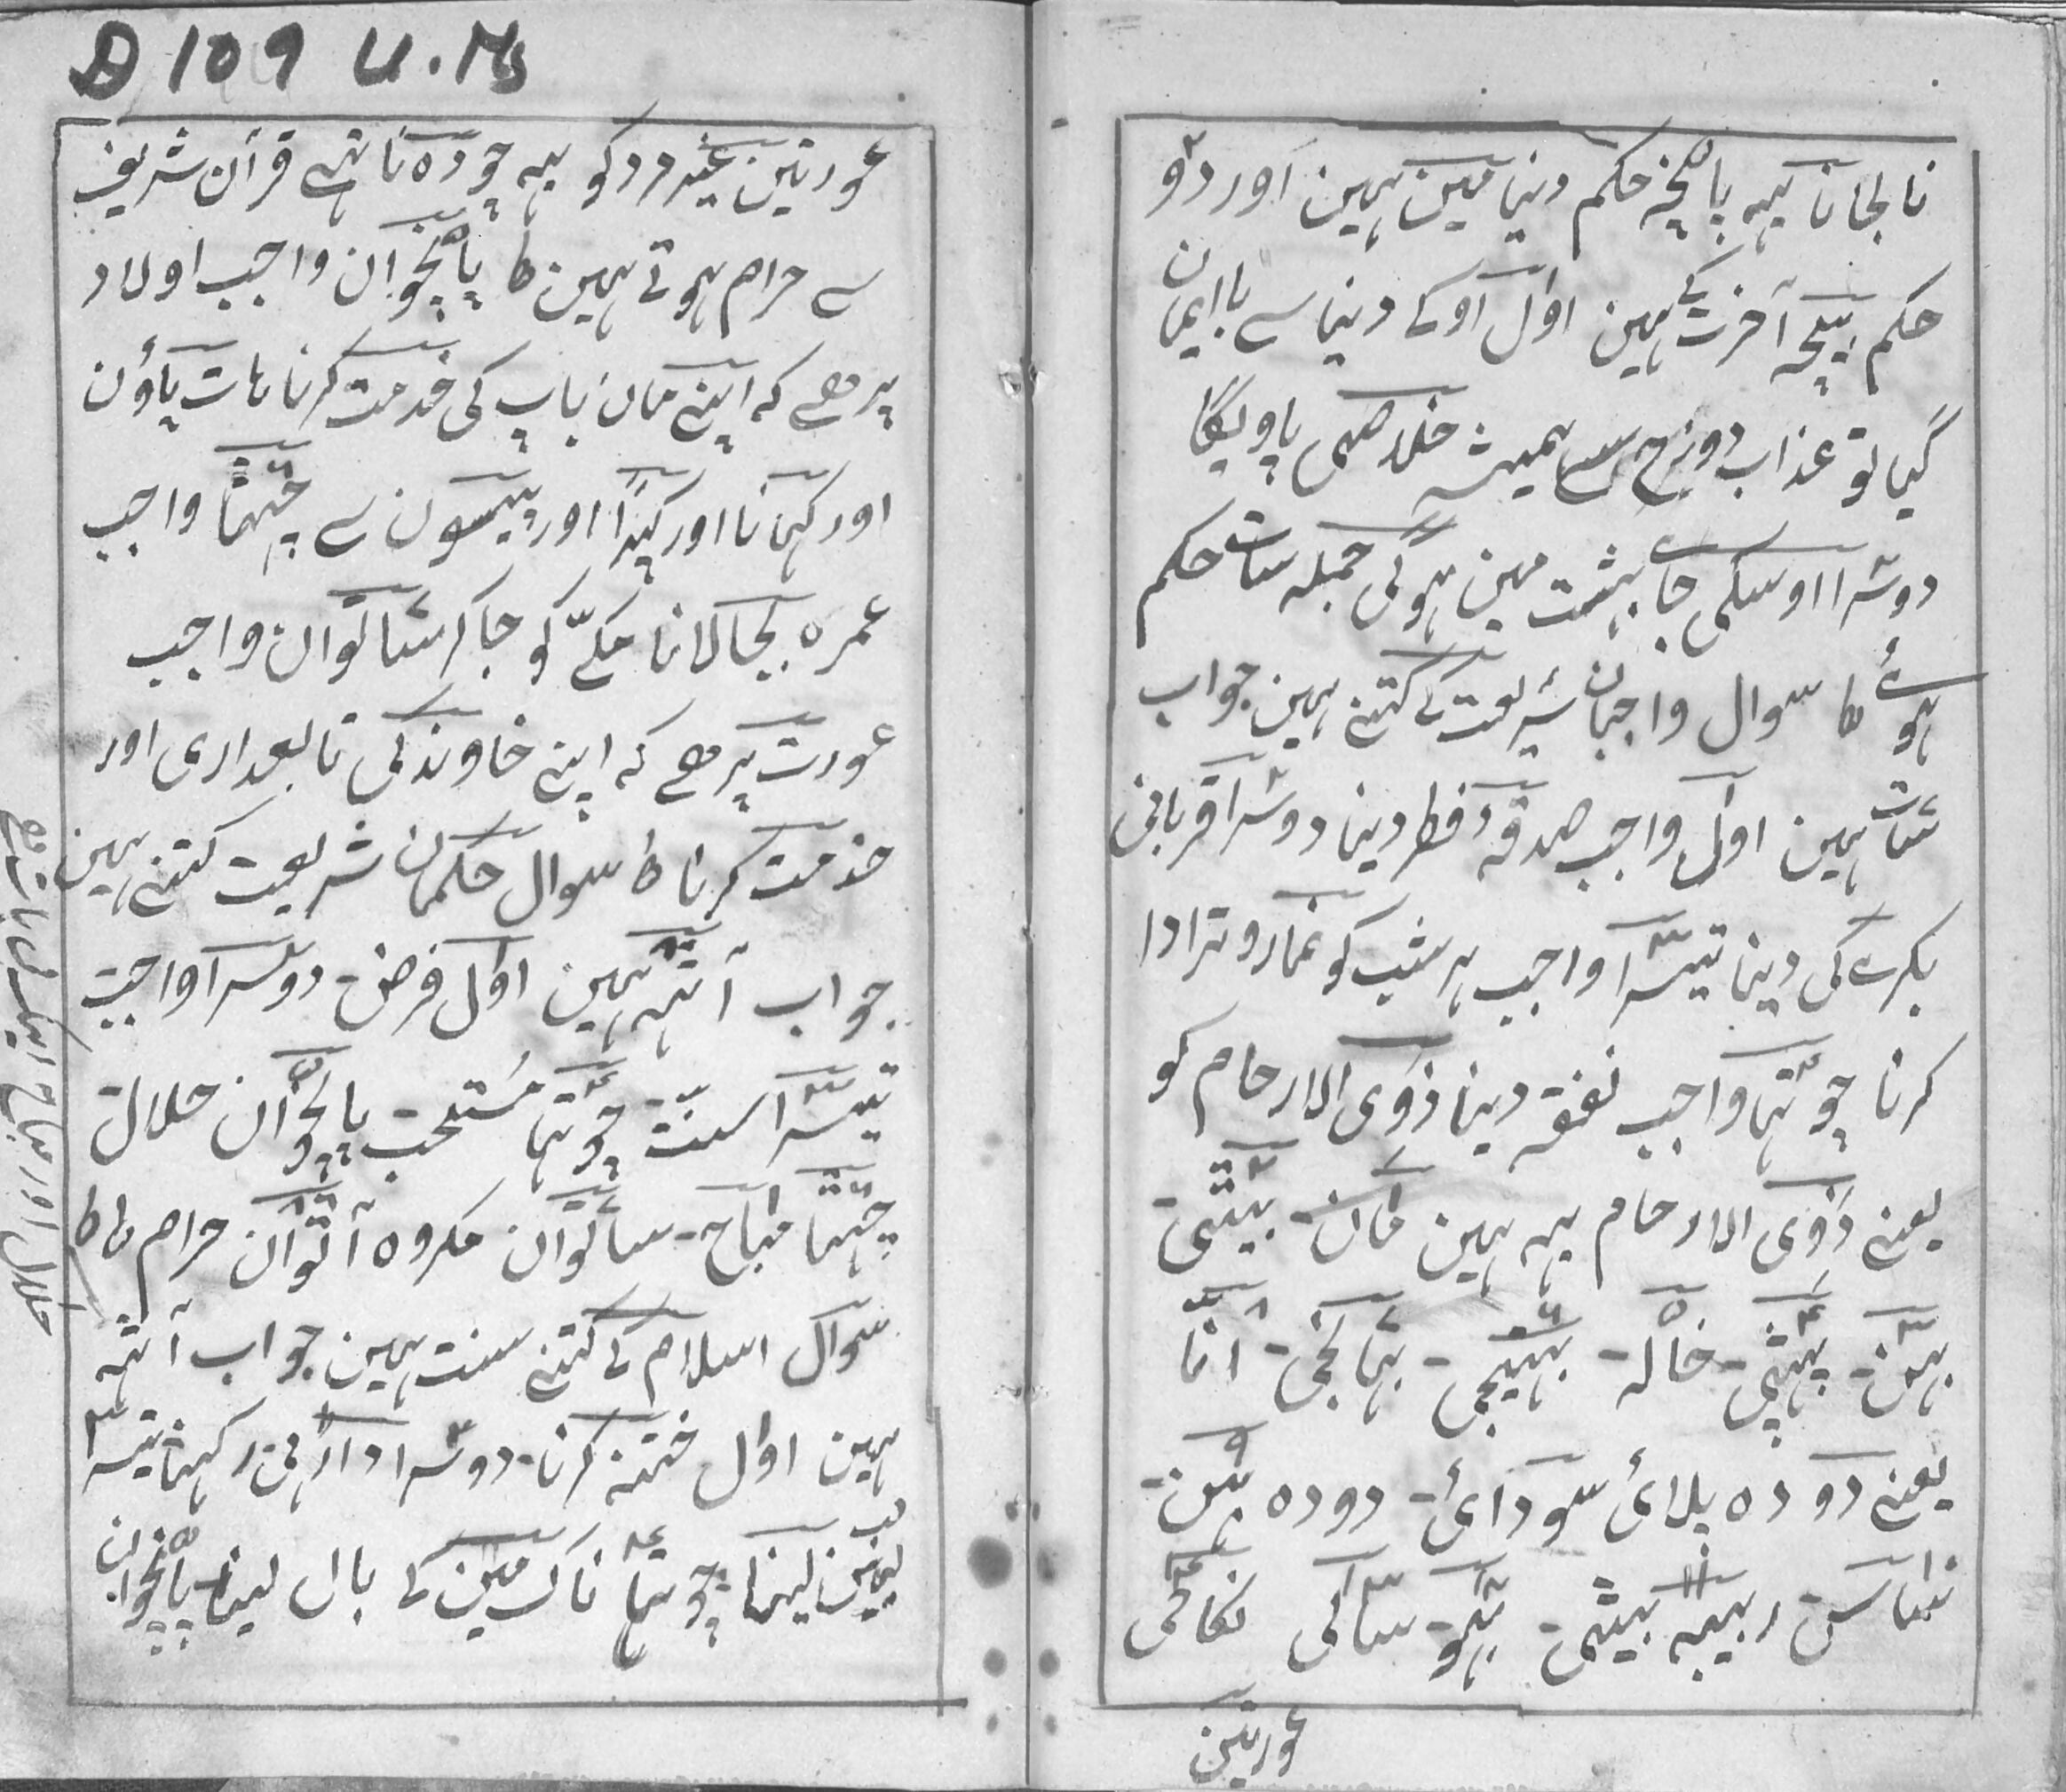 نالجانا یہہ پانچہ حکم دنیا مین ہین اور دو
حکم بیچہ آخرت کے ہین اول اوکے دنیا سے باایمان
گیا تو عذاب دوزخ سے ہمیشہ خلاصی پاویگا
دوسرا اوسکی جاے بہشت مین ہوگی جملہ سات حکم
ہوے سوال واجبان شریعت کے کتنے ہین جواب
سات ہین اول واجب صدقہ فطر دینا دوسرا قربانی
بکرے کی دینا تیسرا واجب ہر شب کو نماز وتر ادا
کرنا چوتہا واجب نفقہ دینا ذوی الارحام کو
یعنے ذوی الارحام یہہ ہین مان۔ بیٹی۔
بہن۔ پہپی۔ خالہ۔ بہتیجی۔ بہانجی۔ انّا
یعنے دودہ پلائی سو دائی۔ دودہ بہن۔
ساس۔ ربیبہ بیٹی۔ بہو۔ سالی نکاحی
عورتین
D 109 U. Ms
عورتین غیر مرد کو یہہ چودہ ناتہے قرآن شریف
سے حرام ہوتے ہین پانچوان واجب اولاد
پر ھے کہ اپنے مان باپ کی خدمت کرنا ہات پاؤن
اور کہانا اور کپڑا اور پیسون سے چہٹا واجب
عمرہ بجالانا مکے کو جاکر ساتوان واجب
عورت پر ھے کہ اپنے خاوند کی تابعداری اور
خدمت کرنا سوال حکمان شریعت کتنے ہین
جواب آٹہہ ہین اول فرض۔ دوسرا واجب
تیسرا سنّت چوتہا مستحب پانچوان حلال
چہٹا مباح۔ ساتوان مکروہ آٹوان حرام
سوال اسلام کے کتنے سنت ہین جواب آٹہہ
ہین اول ختنہ کرنا۔ دوسرا داڑہی رکہنا تیسرا
لبین لینا۔ چوتہا ناک مین کے بال لینا پانچوان
حلال اور مباح ایک